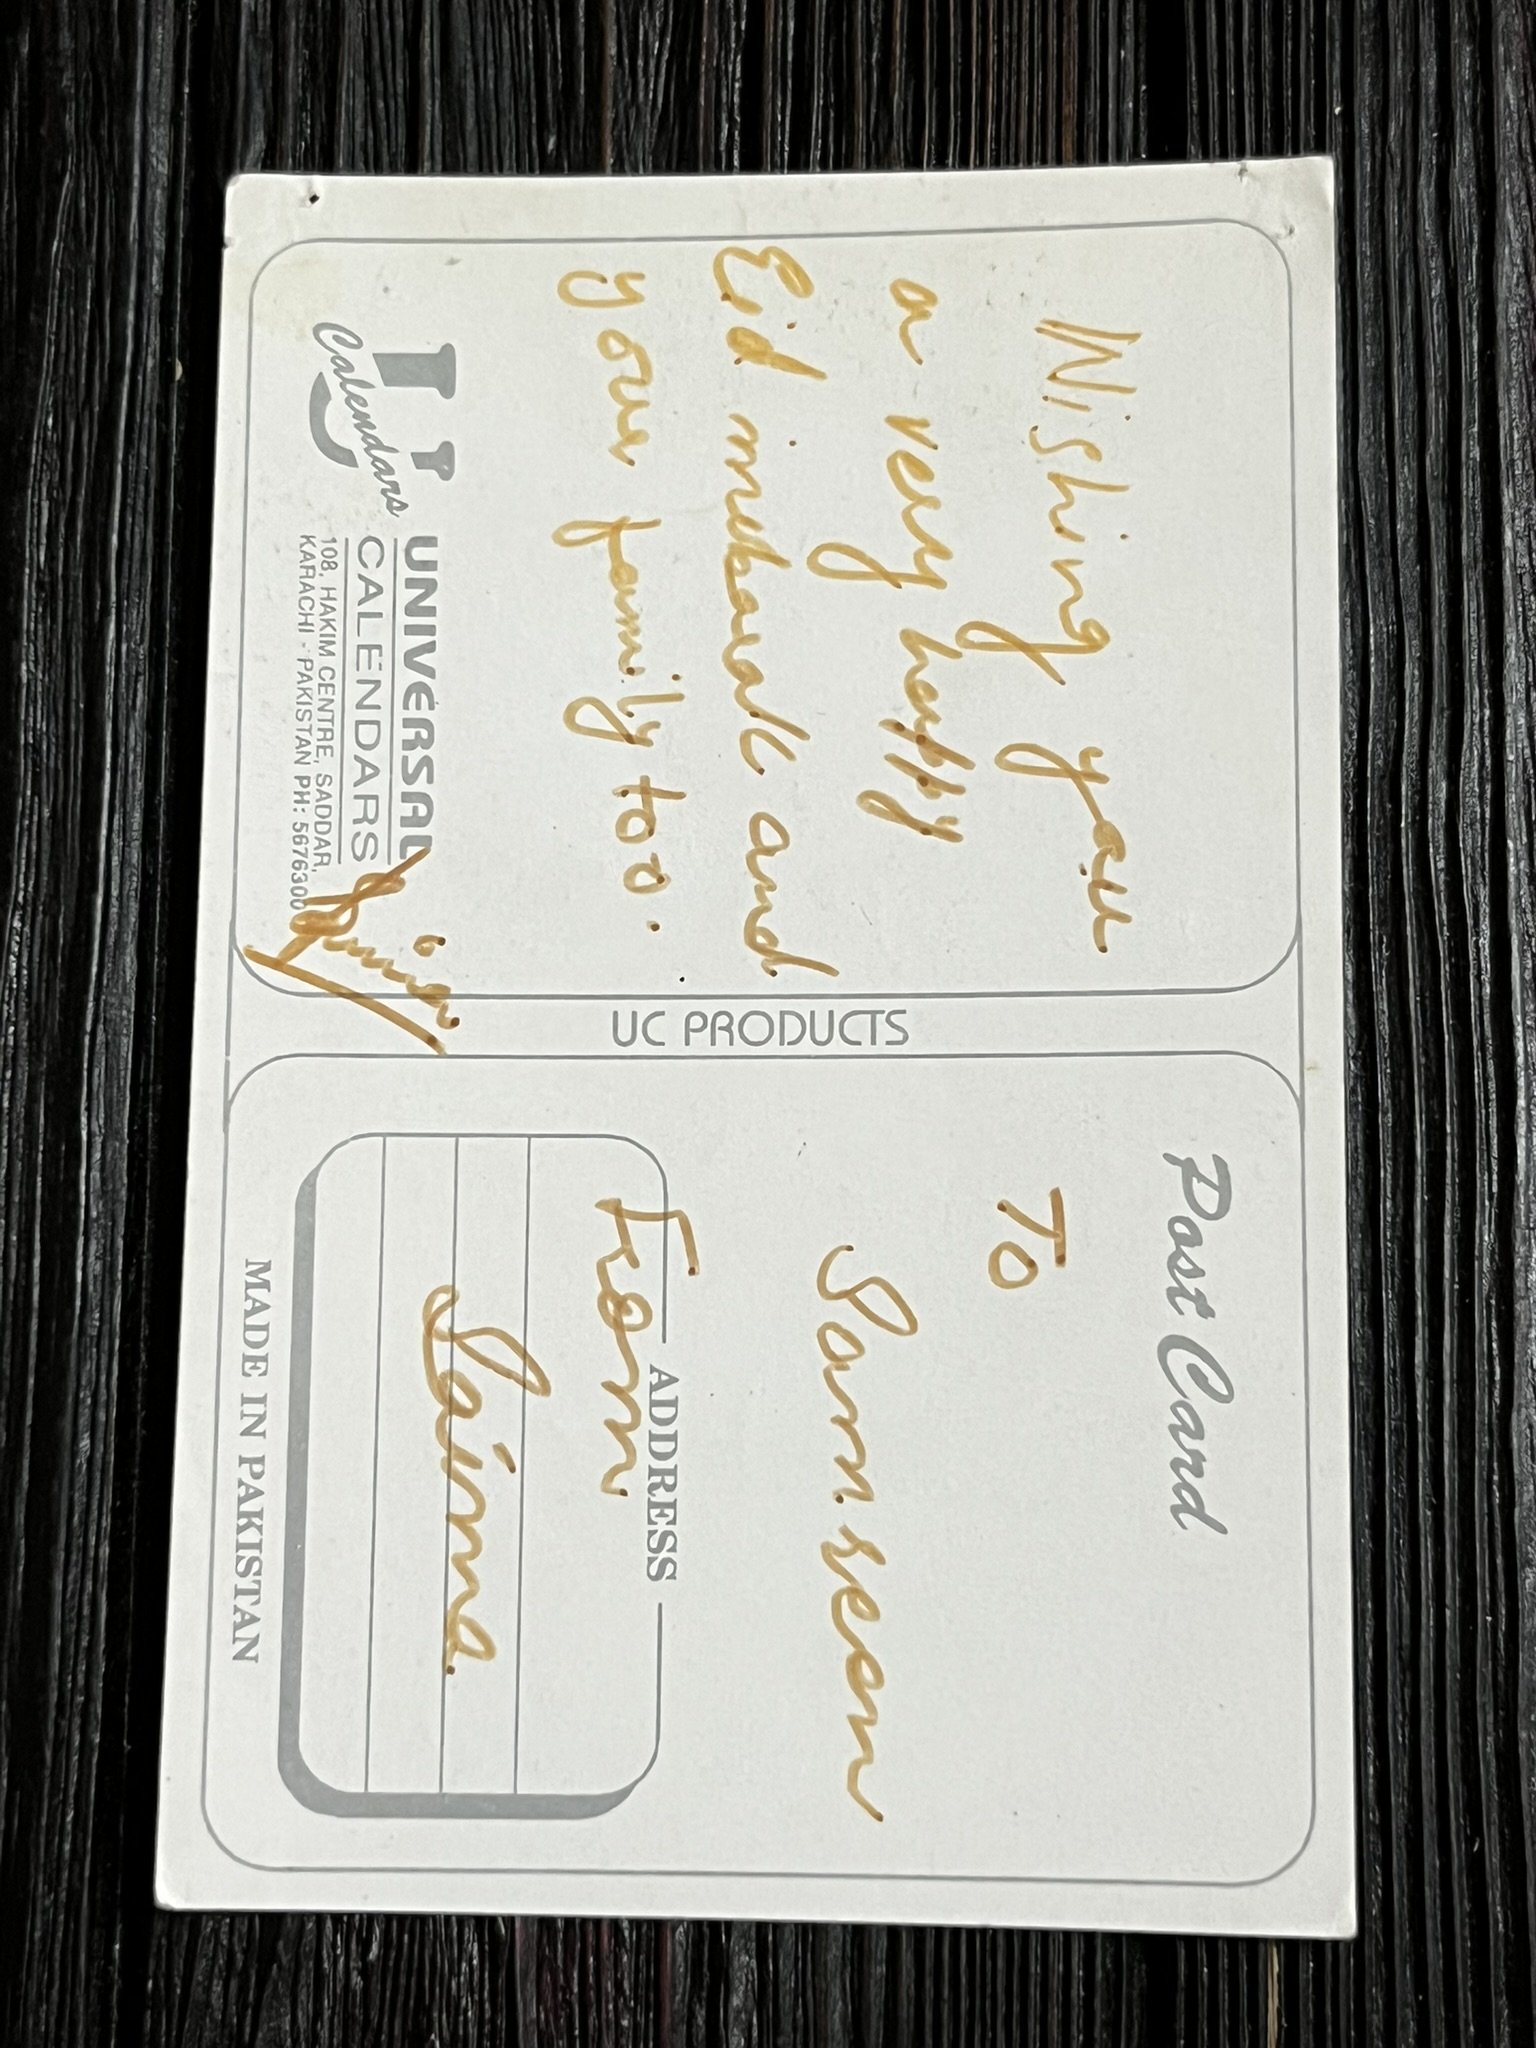 Wishing you
a very happy
Eid mubarak and
your family too.
Calendars
UNIVERSAL
CALENDARS
108, HAKIM CENTRE, SADDAR,
KARACHI - PAKISTAN PH: 5676300
UC PRODUCTS
Post Card
To
Samreen
ADDRESS
From
Saima
MADE IN PAKISTAN